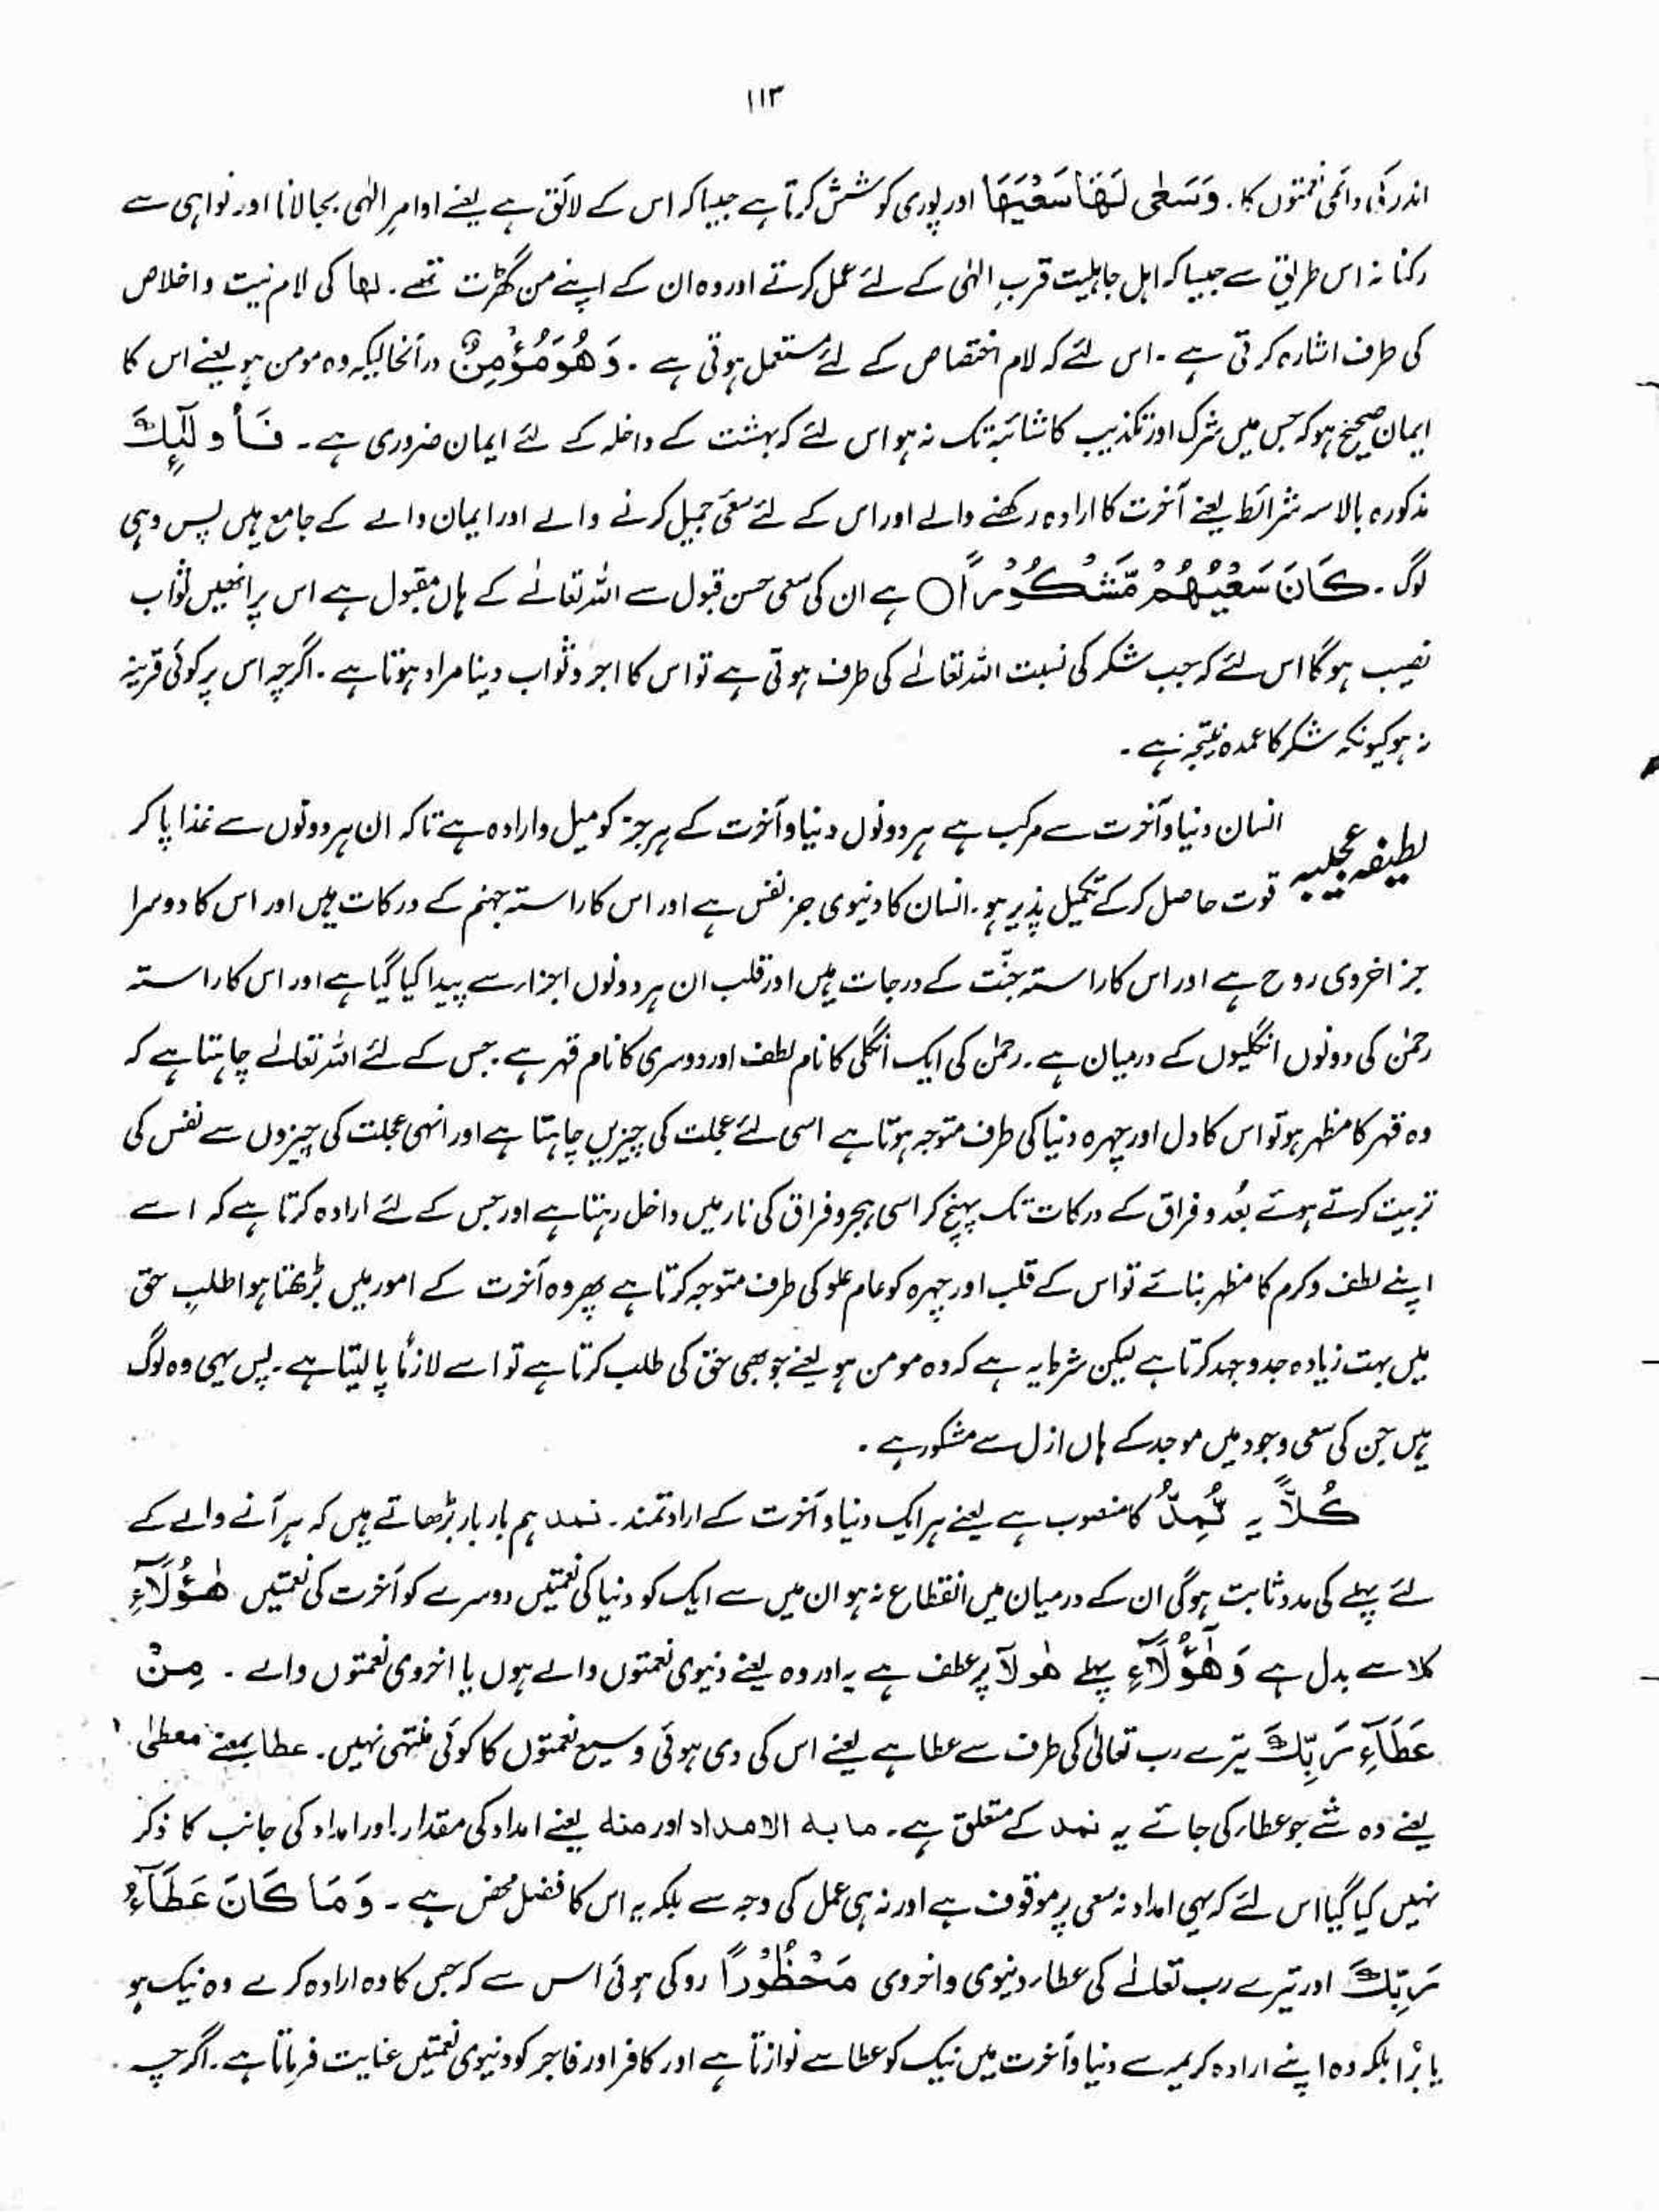 ۱۱۳
اندر کی دائمی نعمتوں کا۔ وَسَعٰی لَهَا سَعْيَهَا اور پوری کوشش کرتا ہے جیسا کہ اس کے لائق ہے یعنے اوامرِ الٰہی بجا لانا اور نواہی سے
رکنا نہ اس طریق سے جیسا کہ اہل جاہلیت قربِ الٰہی کے لئے عمل کرتے اور وہ ان کے اپنے من گھڑت تھے۔ لها کی لام نیت و اخلاص
کی طرف اشارہ کرتی ہے ۔ اس لئے کہ لام اختصاص کے لئے مستعمل ہوتی ہے ۔ وَهُوَ مُؤْمِنٌ درآنحالیکہ وہ مومن ہو یعنے اس کا
ایمان صحیح ہو کہ جس میں شرک اور تکذیب کا شائبہ تک نہ ہو اس لئے کہ بہشت کے داخلہ کے لئے ایمان ضروری ہے ۔ فَأُولٰٓئِكَ
مذکورہ بالا سہ شرائط یعنے آخرت کا ارادہ رکھنے والے اور اس کے لئے سعی جمیل کرنے والے اور ایمان والے کے جامع ہیں پس وہی
لوگ ۔ كَانَ سَعْيُهُمْ مَّشْكُوْرًا ○ ہے ان کی سعی حسن قبول سے اللہ تعالےٰ کے ہاں مقبول ہے اس پر انھیں ثواب
نصیب ہوگا اس لئے کہ جب شکر کی نسبت اللہ تعالےٰ کی طرف ہوتی ہے تو اس کا اجر و ثواب دینا مراد ہوتا ہے ۔ اگرچہ اس پر کوئی قرینہ
نہ ہو کیونکہ شکر کا عمدہ نتیجہ ہے ۔
لطیفہ عجیبہ
انسان دنیا و آخرت سے مرکب ہے ہر دونوں دنیا و آخرت کے ہر جز کو میل و ارادہ ہے تاکہ ان ہر دونوں سے غذا پا کر
قوت حاصل کر کے تکمیل پذیر ہو ۔ انسان کا دنیوی جز نفس ہے اور اس کا راستہ جہنم کے درکات ہیں اور اس کا دوسرا
جز اخروی روح ہے اور اس کا راستہ جنّت کے درجات ہیں اور قلب ان ہر دونوں اجزاء سے پیدا کیا گیا ہے اور اس کا راستہ
رحمٰن کی دونوں انگلیوں کے درمیان ہے ۔ رحمٰن کی ایک انگلی کا نام لطف اور دوسری کا نام قہر ہے ۔ جس کے لئے اللہ تعالےٰ چاہتا ہے کہ
وہ قہر کا مظہر ہو تو اس کا دل اور چہرہ دنیا کی طرف متوجہ ہوتا ہے اسی لئے عجلت کی چیزیں چاہتا ہے اور انہی عجلت کی چیزوں سے نفس کی
تربیت کرتے ہوئے بُعد و فراق کے درکات تک پہنچ کر اسی ہجر و فراق کی نار میں داخل رہتا ہے اور جس کے لئے ارادہ کرتا ہے کہ اسے
اپنے لطف و کرم کا مظہر بنائے تو اس کے قلب اور چہرہ کو عام علو کی طرف متوجہ کرتا ہے پھر وہ آخرت کے امور میں بڑھتا ہوا طلبِ حق
میں بہت زیادہ جدوجہد کرتا ہے لیکن شرط یہ ہے کہ وہ مومن ہو یعنے جو بھی حق کی طلب کرتا ہے تو اسے لازمًا پا لیتا ہے ۔ پس یہی وہ لوگ
ہیں جن کی سعی وجود میں موجد کے ہاں ازل سے مشکور ہے ۔
كُلًّا یہ نُّمِدُّ کا منصوب ہے یعنے ہر ایک دنیا و آخرت کے ارادتمند ۔ نمد ہم بار بار بڑھاتے ہیں کہ ہر آنے والے کے
لئے پہلے کی مدد ثابت ہوگی ان کے درمیان میں انقطاع نہ ہو ان میں سے ایک کو دنیا کی نعمتیں دوسرے کو آخرت کی نعمتیں هٰٓؤُلَآءِ
کلا سے بدل ہے وَهٰٓؤُلَآءِ پہلے هٰولآ پر عطف ہے یہ اور وہ یعنے دنیوی نعمتوں والے ہوں یا اخروی نعمتوں والے ۔ مِنْ
عَطَآءِ رَبِّكَ تیرے رب تعالیٰ کی طرف سے عطا ہے یعنے اس کی دی ہوئی وسیع نعمتوں کا کوئی منتہی نہیں ۔ عطا بمعنے معطٰی
یعنے وہ شے جو عطاء کی جائے یہ نمد کے متعلق ہے ۔ ما به الامداد اور منه یعنے امداد کی مقدار اور امداد کی جانب کا ذکر
نہیں کیا گیا اس لئے کہ یہی امداد نہ سعی پر موقوف ہے اور نہ ہی عمل کی وجہ سے بلکہ یہ اس کا فضل محض ہے ۔ وَمَا كَانَ عَطَآءُ
رَبِّكَ اور تیرے رب تعالےٰ کی عطاء دنیوی و اخروی مَحْظُوْرًا روکی ہوئی اس سے کہ جس کا وہ ارادہ کرے وہ نیک ہو
یا بُرا بلکہ وہ اپنے ارادہ کریمہ سے دنیا و آخرت میں نیک کو عطا سے نوازتا ہے اور کافر اور فاجر کو دنیوی نعمتیں عنایت فرماتا ہے ۔ اگرچہ